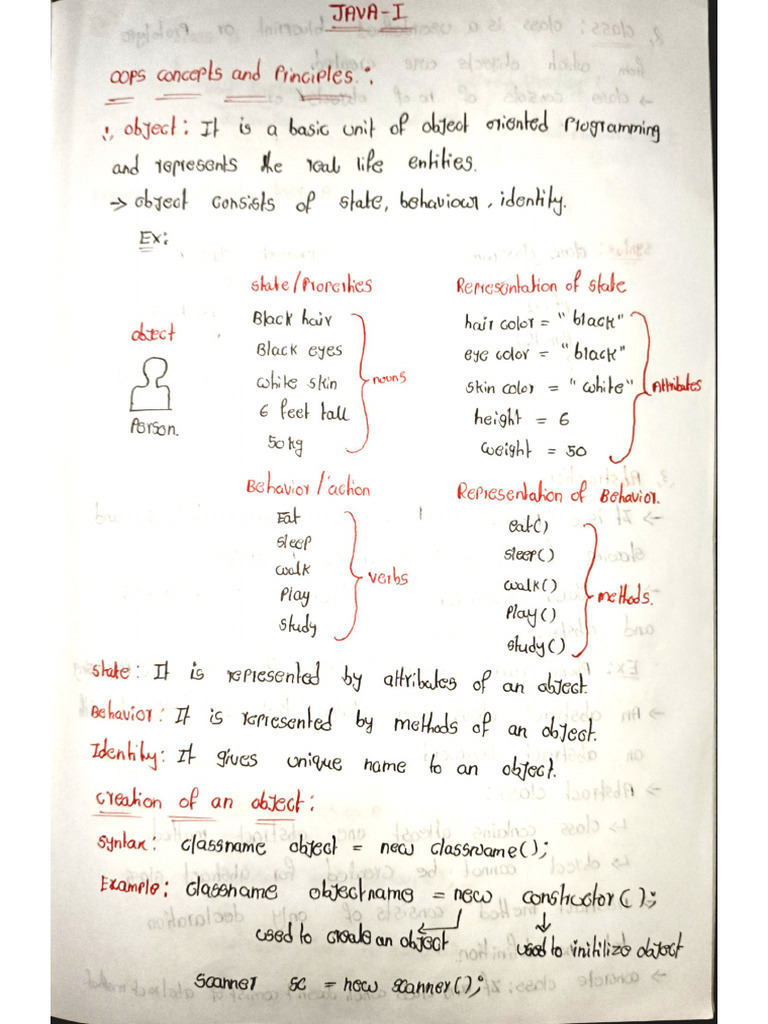 JAVA-I
OOPS concepts and Principles:
1. object: It is a basic unit of object oriented Programming
and represents the real life entities.
→ object consists of state, behaviour, identity.
Ex:
object
Person.
State/Properties
Black hair
Black eyes
white skin
6 feet tall
50kg
nouns
Representation of state
hair color = "black"
eye color = "black"
skin color = "white"
height = 6
weight = 50
Attributes
Behavior/action
Eat
sleep
walk
Play
study
verbs
Representation of Behavior.
eat()
sleep()
walk()
Play()
study()
methods.
State: It is represented by attributes of an object.
Behavior: It is represented by methods of an object.
Identity: It gives unique name to an object.
creation of an object:
Syntax: classname object = new classname();
Example: classname objectname = new constructor();
used to create an object
used to initilize object
scanner sc = new scanner();